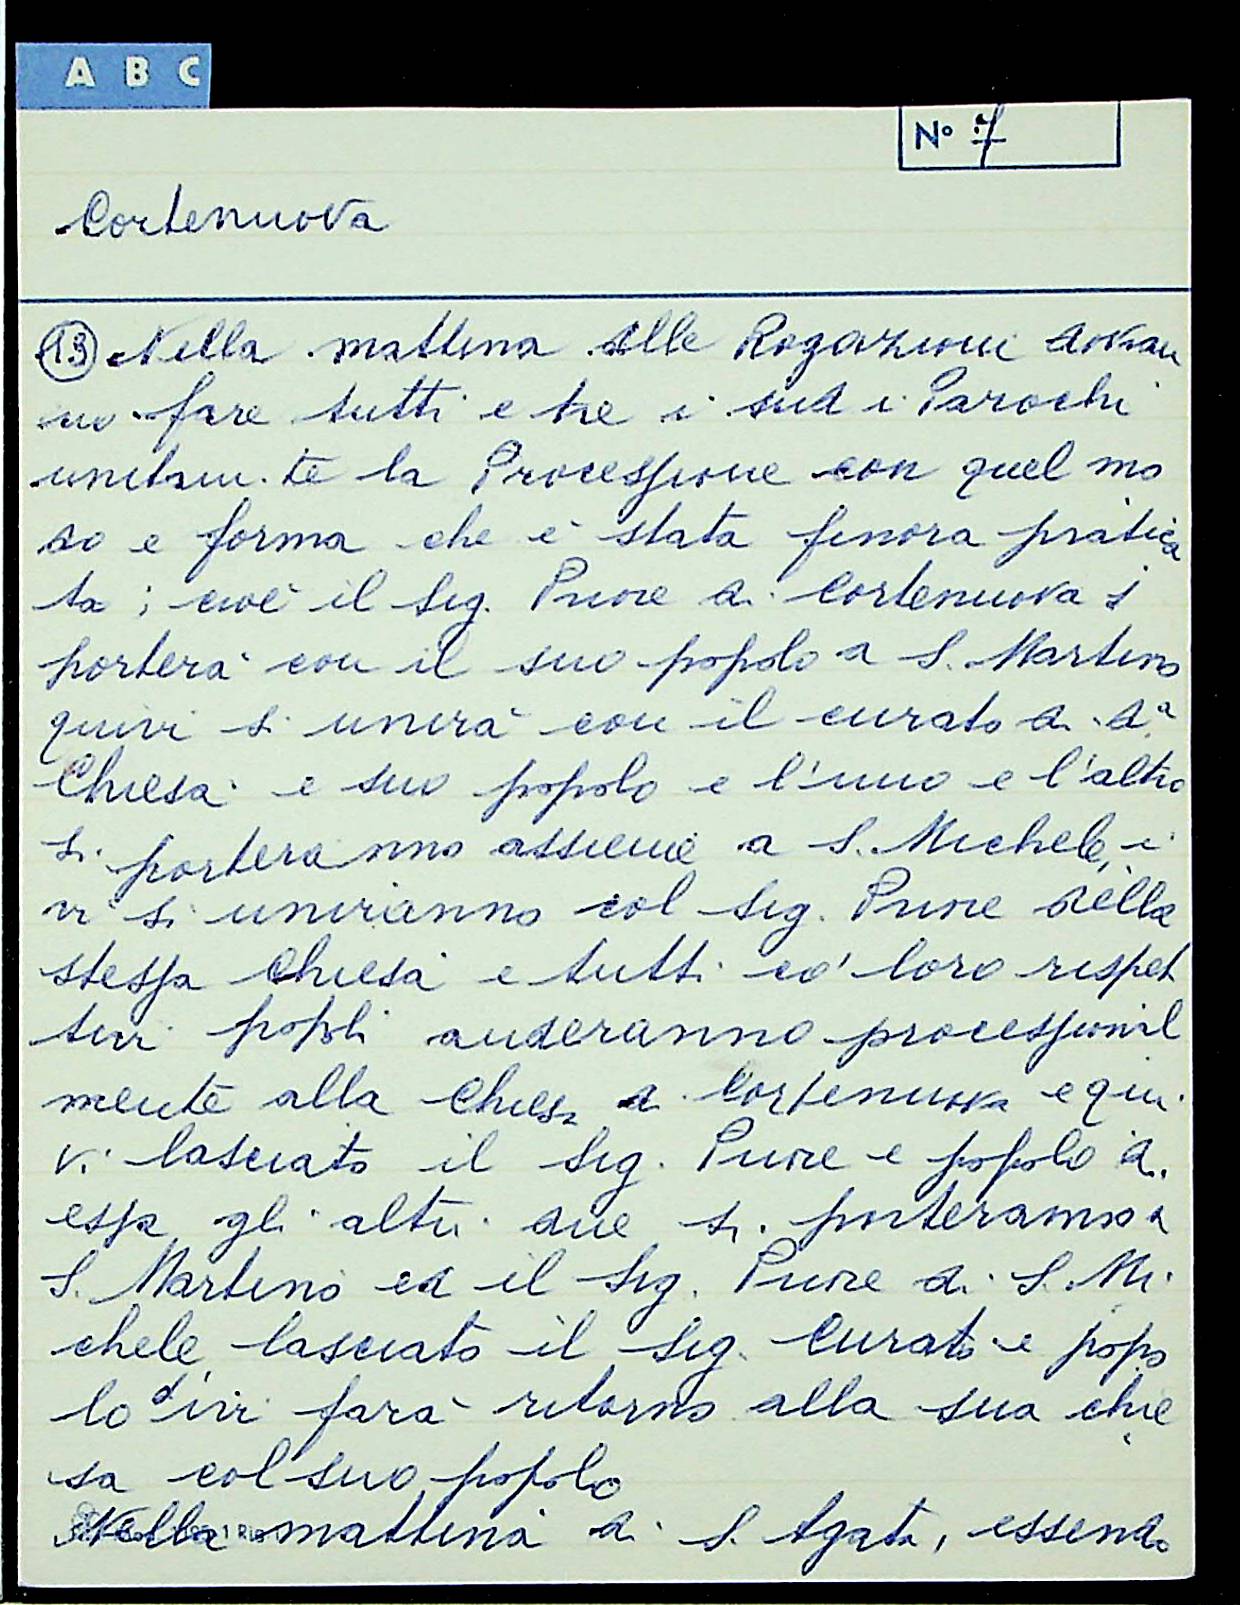 A B C
N° 7
Cortenuova
13) Nella mattina delle Rogazioni dovran
no fare tutti e tre i sud i Parochi
unitam. te la Processione con quel mo
do e forma che è stata finora pratica
ta; cioè il Sig. Priore di Cortenuova si
porterà con il suo popolo a S. Martino
quivi si unirà con il curato di d.a
Chiesa e suo popolo e l'uno e l'altro
si porteranno assieme a S. Michele, i
vi si uniranno col Sig. Priore della
stessa Chiesa e tutti co' loro rispet
tivi popoli anderanno processional
mente alla Chiesa di Cortenuova e qui
vi lasciato il Sig. Priore e popolo di
essa gli altri due si porteranno a
S. Martino ed il Sig. Priore di S. Mi
chele lasciato il Sig. Curato e popo
lo d'ivi farà ritorno alla sua chie
sa col suo popolo
Nella mattina di S. Agata, essendo